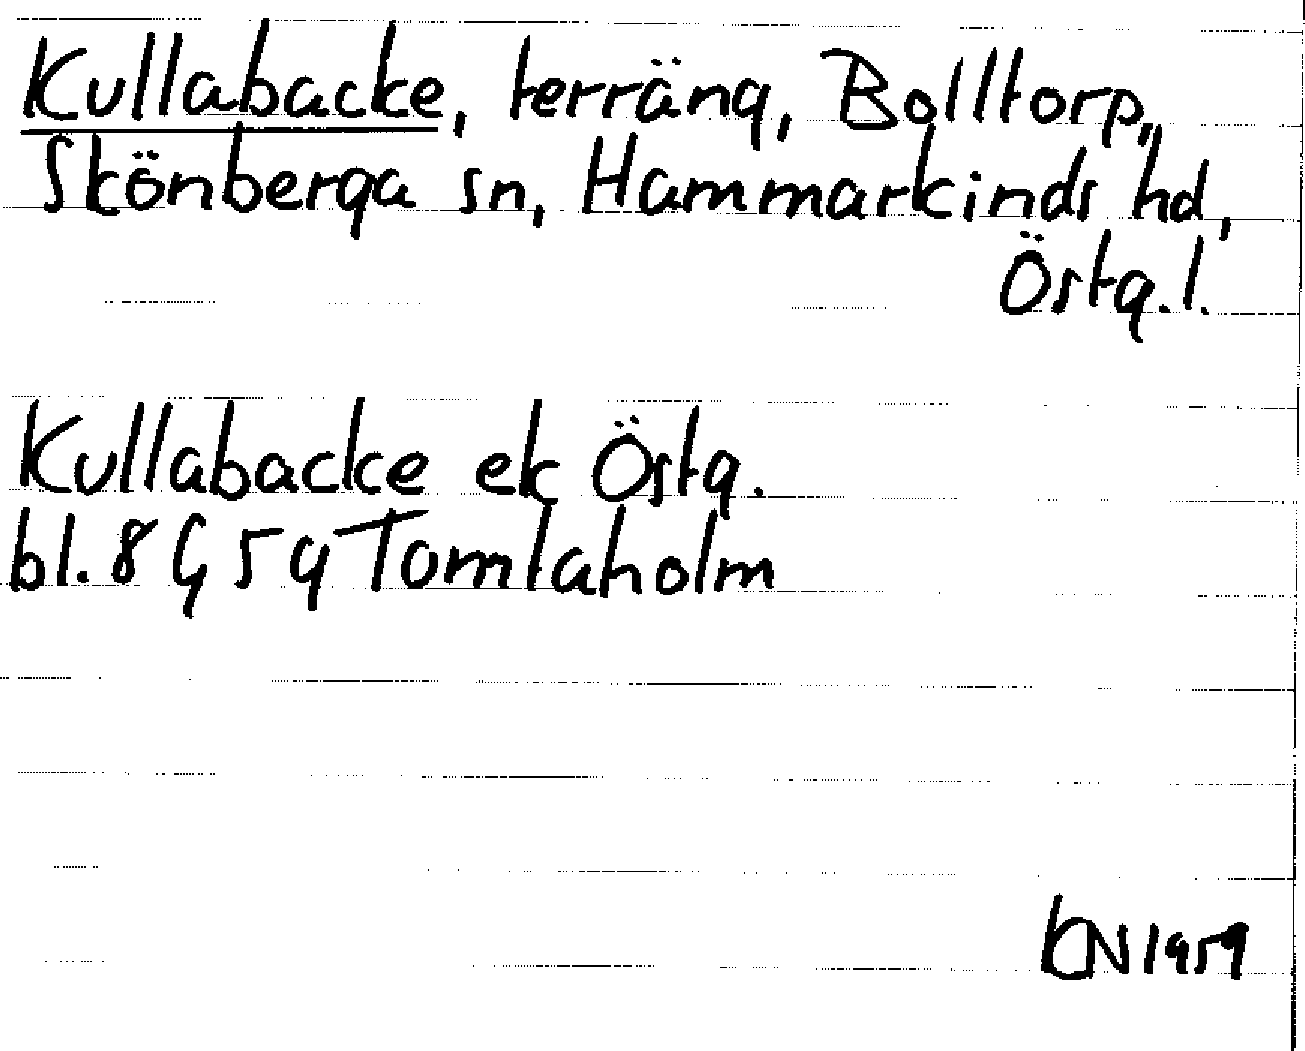 Kullabacke, terräng, Bolltorp,
Skönberga sn, Hammarkinds hd,
Östg.l.
Kullabacke ek Östg.
bl. 8 G 5 g Tomtaholm
1959